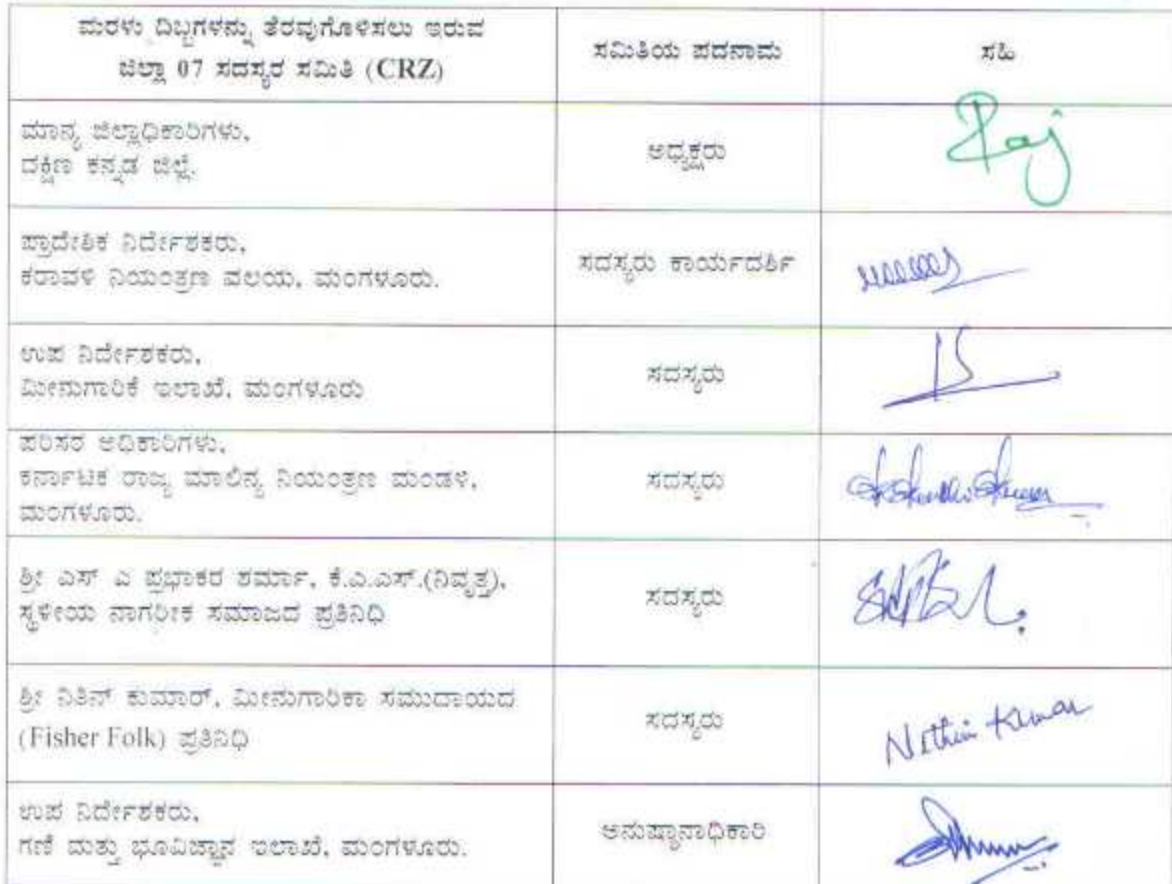 ಮರಳು ದಿಬ್ಬಗಳನ್ನು ತೆರವುಗೊಳಿಸಲು ಇರುವ
ಜಿಲ್ಲಾ 07 ಸದಸ್ಯರ ಸಮಿತಿ (CRZ)
ಸಮಿತಿಯ ಪದನಾಮ
ಸಹಿ
ಮಾನ್ಯ ಜಿಲ್ಲಾಧಿಕಾರಿಗಳು,
ದಕ್ಷಿಣ ಕನ್ನಡ ಜಿಲ್ಲೆ.
ಅಧ್ಯಕ್ಷರು
Raj
ಪ್ರಾದೇಶಿಕ ನಿರ್ದೇಶಕರು,
ಕರಾವಳಿ ನಿಯಂತ್ರಣ ವಲಯ, ಮಂಗಳೂರು.
ಸದಸ್ಯರು ಕಾರ್ಯದರ್ಶಿ
ಉಪ ನಿರ್ದೇಶಕರು,
ಮೀನುಗಾರಿಕೆ ಇಲಾಖೆ, ಮಂಗಳೂರು
ಸದಸ್ಯರು
ಪರಿಸರ ಅಧಿಕಾರಿಗಳು,
ಕರ್ನಾಟಕ ರಾಜ್ಯ ಮಾಲಿನ್ಯ ನಿಯಂತ್ರಣ ಮಂಡಳಿ,
ಮಂಗಳೂರು.
ಸದಸ್ಯರು
ಶ್ರೀ ಎಸ್ ಎ ಪ್ರಭಾಕರ ಶರ್ಮಾ, ಕೆ.ಎ.ಎಸ್.(ನಿವೃತ್ತ),
ಸ್ಥಳೀಯ ನಾಗರೀಕ ಸಮಾಜದ ಪ್ರತಿನಿಧಿ
ಸದಸ್ಯರು
ಶ್ರೀ ನಿತಿನ್ ಕುಮಾರ್, ಮೀನುಗಾರಿಕಾ ಸಮುದಾಯದ
(Fisher Folk) ಪ್ರತಿನಿಧಿ
ಸದಸ್ಯರು
Nithin Kumar
ಉಪ ನಿರ್ದೇಶಕರು,
ಗಣಿ ಮತ್ತು ಭೂವಿಜ್ಞಾನ ಇಲಾಖೆ, ಮಂಗಳೂರು.
ಅನುಷ್ಠಾನಾಧಿಕಾರಿ